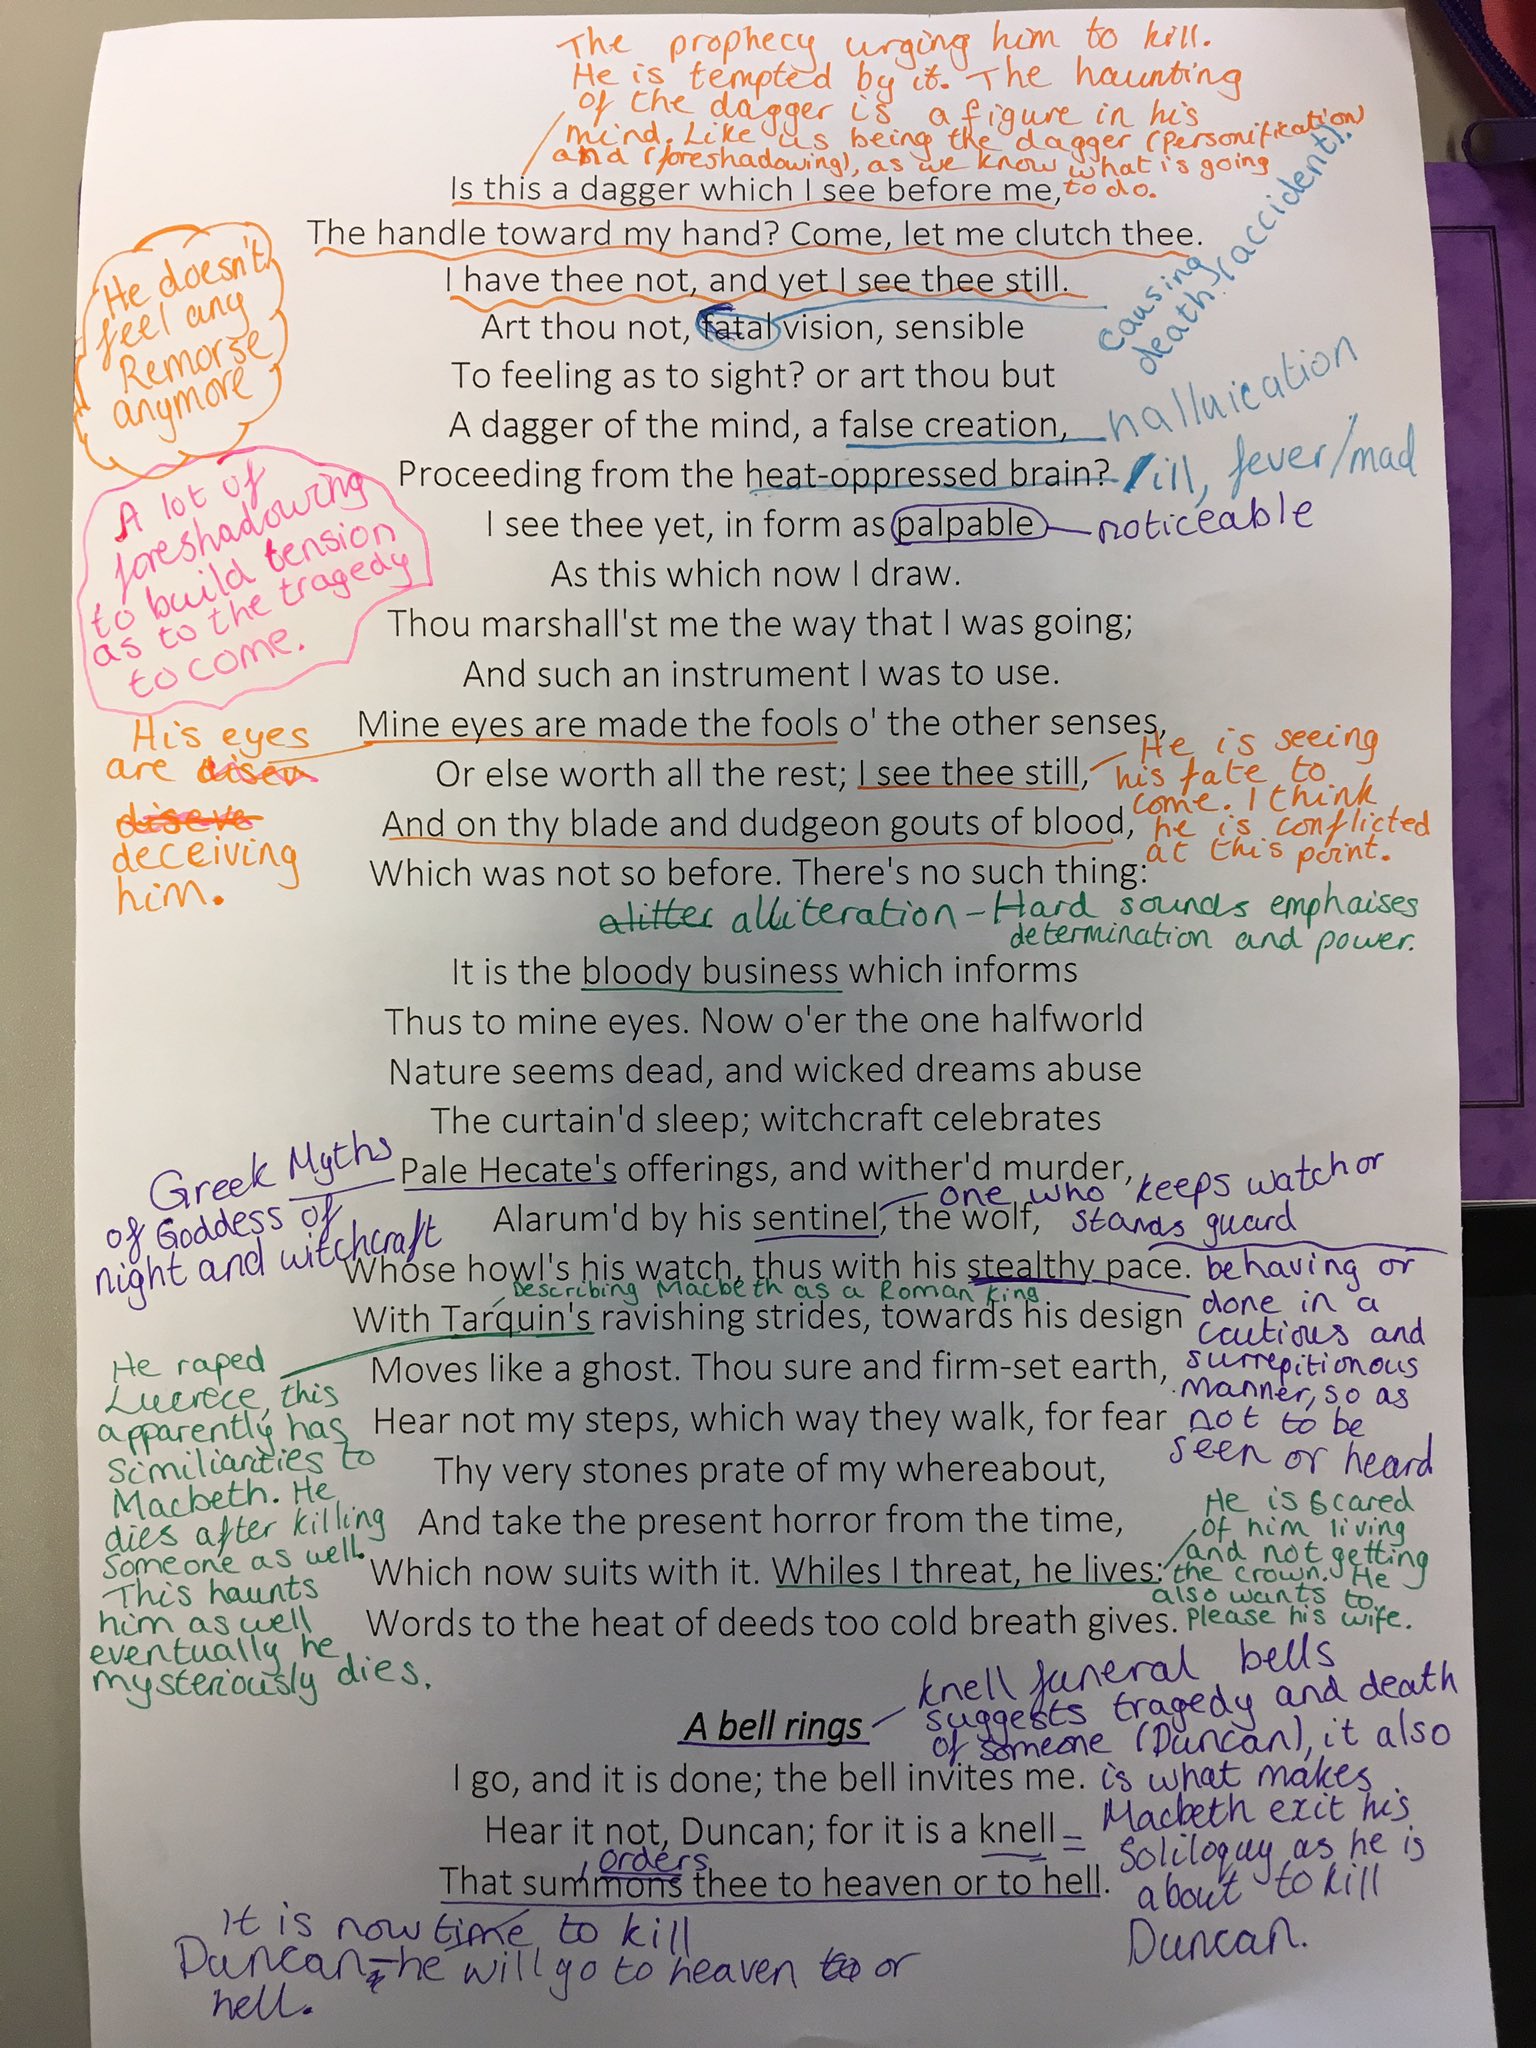 The prophecy urging him to kill.
He is tempted by it. The haunting
of the dagger is a figure in his
mind. Like us being the dagger (Personification)
and (foreshadowing), as we know what is going
to do.
Is this a dagger which I see before me,
The handle toward my hand? Come, let me clutch thee.
I have thee not, and yet I see thee still.
causing
death. (accident).
He doesn't
feel any
Remorse
anymore
Art thou not, fatal vision, sensible
To feeling as to sight? or art thou but
A dagger of the mind, a false creation,
halluication
Proceeding from the heat-oppressed brain?
ill, fever/mad
A lot of
foreshadowing
to build tension
as to the tragedy
to come.
I see thee yet, in form as palpable
noticeable
As this which now I draw.
Thou marshall'st me the way that I was going;
And such an instrument I was to use.
Mine eyes are made the fools o' the other senses,
His eyes
are disen
diseve
deceiving
him.
Or else worth all the rest; I see thee still,
He is seeing
his fate to
come. I think
he is conflicted
at this point.
And on thy blade and dudgeon gouts of blood,
Which was not so before. There's no such thing:
alitter alliteration - Hard sounds emphaises
determination and power.
It is the bloody business which informs
Thus to mine eyes. Now o'er the one halfworld
Nature seems dead, and wicked dreams abuse
The curtain'd sleep; witchcraft celebrates
Greek Myths
of Goddess of
night and witchcraft
Pale Hecate's offerings, and wither'd murder,
Alarum'd by his sentinel, the wolf,
one who keeps watch or
stands guard
Whose howl's his watch, thus with his stealthy pace.
behaving or
done in a
cautious and
surrepitionous
manner, so as
not to be
seen or heard
Describing Macbeth as a Roman King
With Tarquin's ravishing strides, towards his design
He raped
Lucrece, this
apparently has
similiarities to
Macbeth. He
dies after killing
someone as well.
This haunts
him as well
eventually he
mysteriously dies.
Moves like a ghost. Thou sure and firm-set earth,
Hear not my steps, which way they walk, for fear
Thy very stones prate of my whereabout,
And take the present horror from the time,
Which now suits with it. Whiles I threat, he lives:
He is scared
of him living
and not getting
the crown. He
also wants to
please his wife.
Words to the heat of deeds too cold breath gives.
A bell rings
knell funeral bells
suggests tragedy and death
of someone (Duncan), it also
is what makes
Macbeth exit his
Soliloquy as he is
about to kill
Duncan.
I go, and it is done; the bell invites me.
Hear it not, Duncan; for it is a knell =
orders
That summons thee to heaven or to hell.
It is now time to kill
Duncan - he will go to heaven to or
hell.